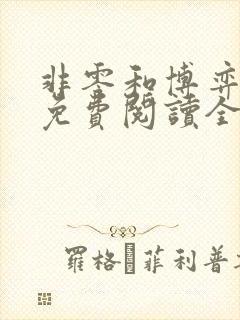 非零和博弈
免費閱讀全
羅格 菲利普